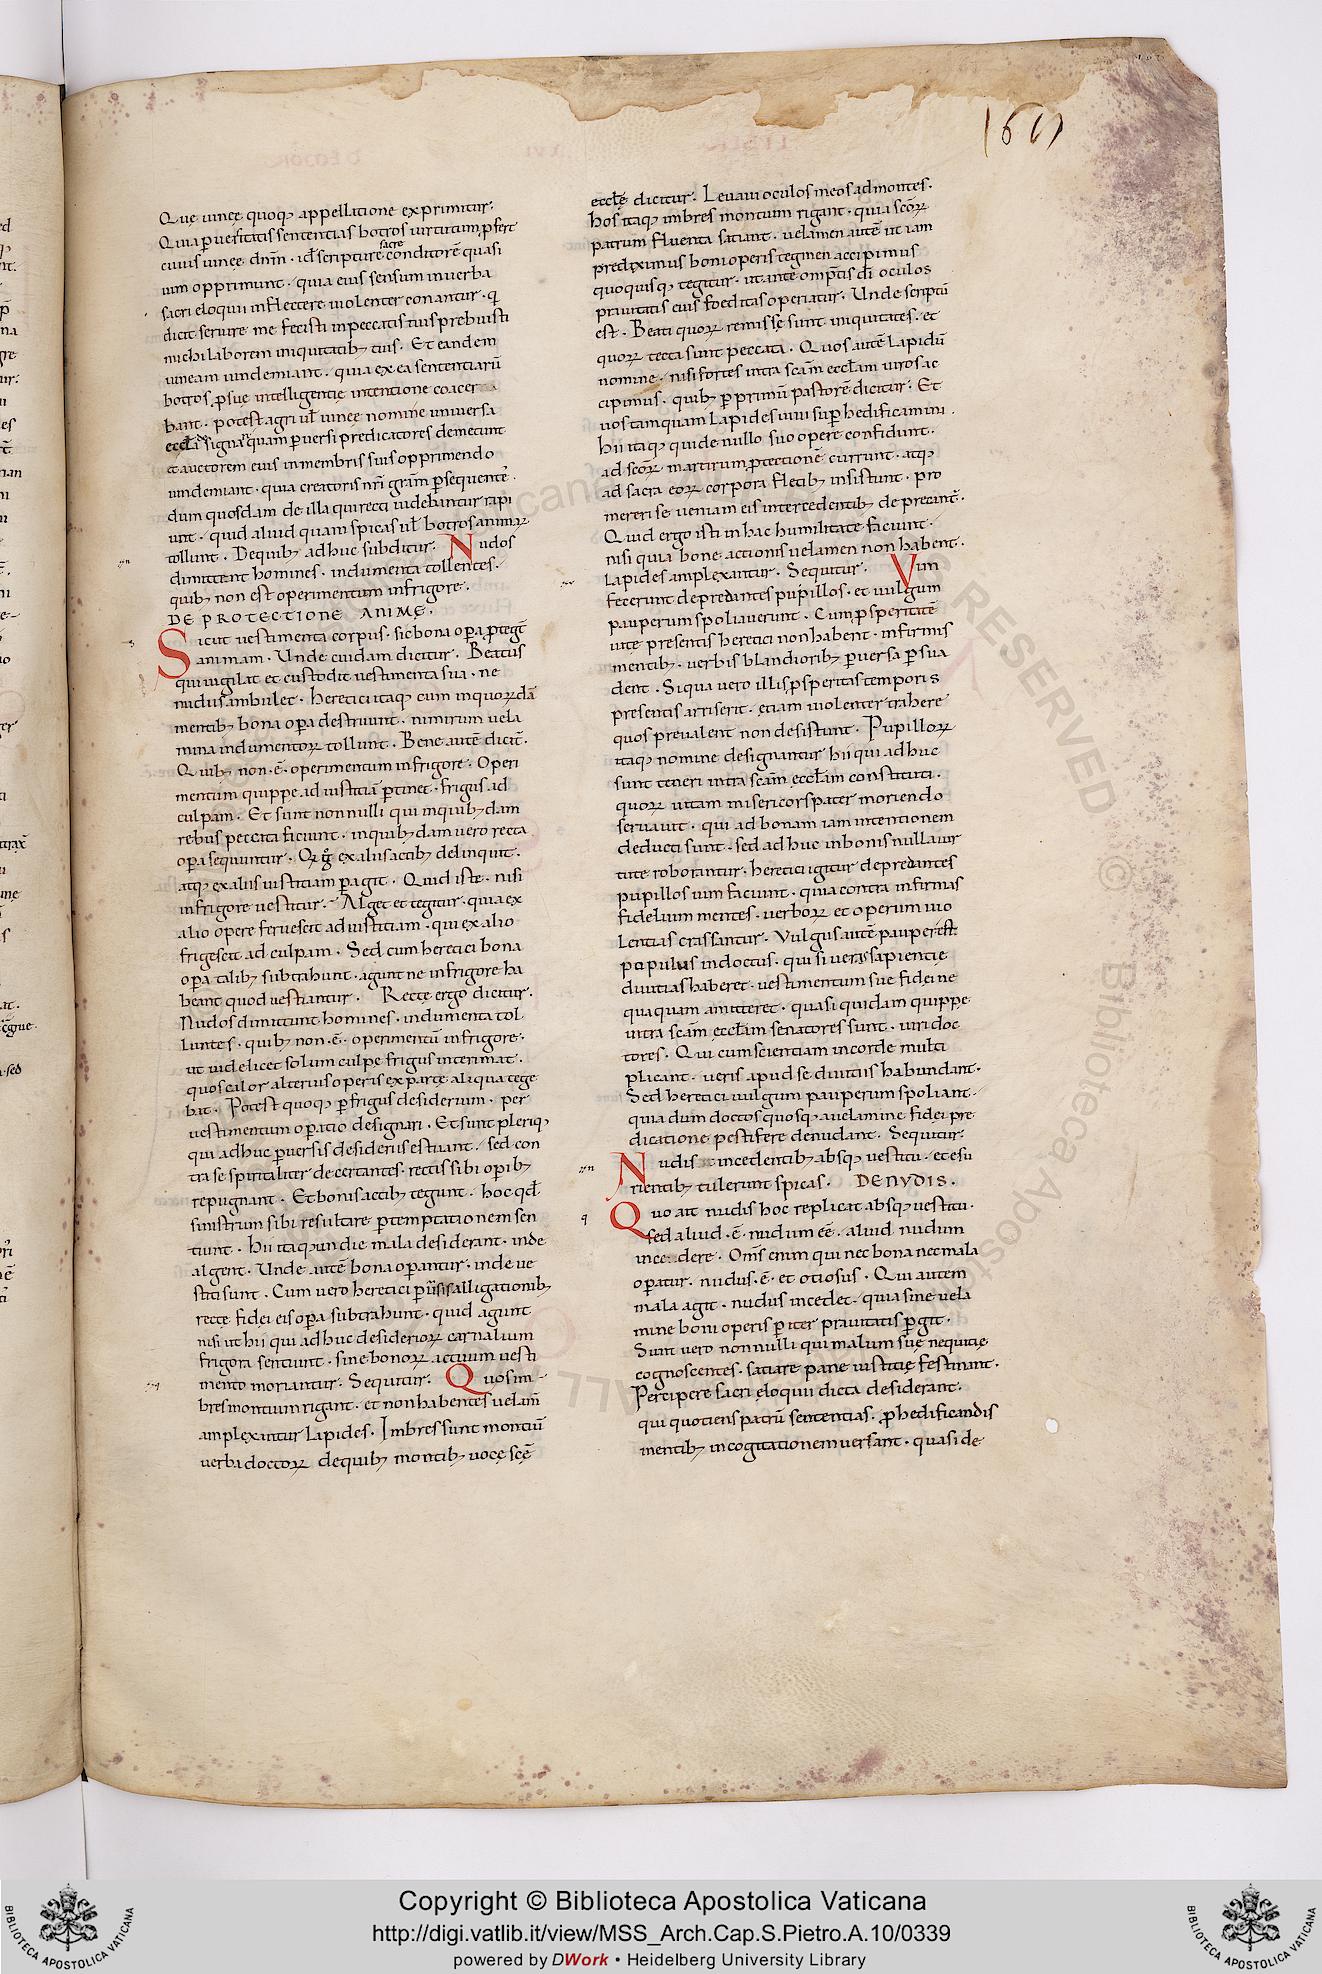 1611
Quę uineę quoq; appellatione exprimitur.
Quia puersitatis sententias botros uirtutum, pfert
cuius uineę dnm̄ · id ē scripturę sacrę conditorē quasi
uim opprimunt · quia eius sensum in uerba
sacri eloquii inflectere uiolenter conantur · q̄
dicit seruire me fecisti in peccatis tuis prebuisti
michi laborem iniquitatib; tuis · Et eandem
uineam uindemiant · quia ex ea sententiarū
botros, p suę intelligentię intentione coacer
bant · potest agri ul̄ uineę nomine uniuersa
eccl̄a signari quam puersi predicatores demetunt
et auctorem eius in membris suis opprimendo
uindemiant · quia creatoris nr̄i grām psequentes ·
dum quosdam de illa qui recti uidebantur rapi
unt · quid aliud quam spicas ul̄ botros animarꝝ
tollunt · De quib; adhuc subditur · Nudos
dimittent homines · indumenta tollentes ·
quib; non est operimentum in frigore ·
DE PROTECTIONE ANIMĘ ·
Sicut uestimenta corpus · sic bona opa ptegt̄
animam · Unde cuidam dicitur · Beatus
qui uigilat et custodit uestimenta sua · ne
nudus ambulet · heretici itaq; cum in quorꝝdā
mentib; bona opa destruunt · nimirum uela
mina indumentorꝝ tollunt · Bene autē dicit̄ ·
Quib; non · ē · operimentum in frigore · Operi
mentum quippe ad iustitiā ptinet · frigus ad
culpam · Et sunt nonnulli qui in quib; dam
rebus peccata faciunt · in quib; dam uero recta
opa sequuntur · Qꝝ ḡ ex aliis actib; delinquit ·
atq; ex aliis iustitiam pagit · Quid iste · nisi
in frigore uestitur · Alget et tegitur · quia ex
alio opere feruescit ad iustitiam · qui ex alio
frigescit ad culpam · Sed cum heretici bona
opa talib; subtrahunt · agunt ne in frigore ha
beant quod uestiantur · Rectę ergo dicitur ·
Nudos dimittunt homines · indumenta tol
luntes · quib; non · ē · operimentū in frigore ·
ut uidelicet solum culpę frigus interimat ·
quos calor alterius operis ex parte aliqua tege
bat · Potest quoq; p frigus desiderium · per
uestimentum opatio designari · Et sunt pleriq;
qui adhuc puersis desideriis estuant · sed con
tra se spiritaliter decertantes · rectis sibi opib;
repugnant · Et bonis actib; tegunt · hoc qd̄
sinistrum sibi resultare p temptationem sen
tiunt · hii itaq; unde mala desiderant · inde
algent · Unde autē bona opantur · inde ue
stiti sunt · Cum uero heretici puisis alligationib;
rectę fidei eis opa subtrahunt · quid agunt
nisi ut hii qui adhuc desideriorꝝ carnalium
frigora sentiunt · sine bonorꝝ actuum uesti
mento moriantur · Sequitur · Quos im
bres montium rigant · et non habentes uelam̄
amplexantur lapides · Imbres sunt montiū
uerba doctorꝝ de quib; montib; uocę scę
eccl̄ę dicitur · Leuaui oculos meos ad montes ·
hos itaq; imbres montum rigant · quia scōrꝝ
patrum fluenta satiant · uelamen autē ut iam
prediximus boni operis tegmen accipimus
quo quisq; tegitur · ut ante omptis dī oculos
prauitatis eius foeditas operiatur · Unde scriptū
est · Beati quorꝝ remissę sunt iniquitates · et
quorꝝ tecta sunt peccata · Quos autē lapidū
nomine · nisi fortes intra scam̄ eccl̄am uiros ac
cipimus · quib; p primū pastorē dicitur · Et
uos tamquam lapides uiui suphedificamini ·
hii itaq; qui de nullo suo opere confidunt ·
ad scōrꝝ martirum ptectionē currunt · atq;
ad sacra eorꝝ corpora fletib; insistunt · pro
mereri se ueniam eis intercedentib; deprecant̄ ·
Quid ergo isti in hac humilitate faciunt ·
nisi quia bonę actionis uelamen non habent ·
lapides amplexantur · Sequitur · Vim
fecerunt depredantes pupillos · et uulgum
pauperum spoliauerunt · Cum, psperitatē
uitę presentis heretici non habent · infirmis
mentib; · uerbis blandiorib; puersa psua
dent · Si qua uero illis, psperitas temporis
presentis arriserit · etiam uiolenter trahere
quos preualent non desistunt · Pupillorꝝ
itaq; nomine designantur hii qui adhuc
sunt teneri intra scam̄ eccl̄am constituti ·
quorꝝ uitam misericors pater moriendo
seruauit · qui ad bonam iam intentionem
deducti sunt · sed adhuc in bonis nulla uir
tute roborantur · heretici igitur depredantes
pupillos uim faciunt · quia contra infirmas
fidelium mentes · uerborꝝ et operum uio
lentias crassantur · Vulgus autē pauper est
populus indoctus · qui si ueras sapientię
diuitias haberet · uestimentum suę fidei ne
quaquam amitteret · quasi quidam quippe
intra scam̄ eccl̄am senatores sunt · uiri doc
tores · Qui cum scientiam in corde multi
plicant · ueris apud se diuitiis habundant ·
Sed heretici uulgum pauperum spoliant ·
quia dum doctos quosq; a uelamine fidei pre
dicatione pestifere denudant · Sequitur ·
Nudis incedentib; absq; uestitu · et esu
rientib; tulerunt spicas · DE NVDIS ·
Quo ait nudis hoc replicat absq; uestitu ·
sed aliud · ē · nudum eē · aliud nudum
incedere · Om̄s enim qui nec bona nec mala
opatur · nudus · ē · et otiosus · Qui autem
mala agit · nudus incedet · quia sine uela
mine boni operis p iter prauitatis pgit ·
Sunt uero nonnulli qui malum suę nequitię
cognoscentes · satiare pane iustitię festinant ·
Percipere sacri eloquii dicta desiderant ·
qui quotiens patrū sententias · p hedificandis
mentib; in cogitationem uersant · quasi de
Copyright © Biblioteca Apostolica Vaticana
http://digi.vatlib.it/view/MSS_Arch.Cap.S.Pietro.A.10/0339
powered by DWork • Heidelberg University Library